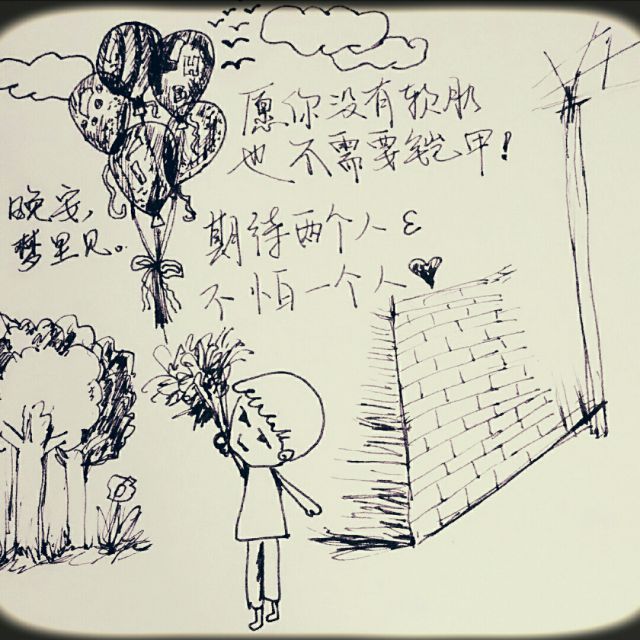 愿你没有软肋
也不需要铠甲!
期待两个人 &
不怕一个人
晚安,
梦里见。